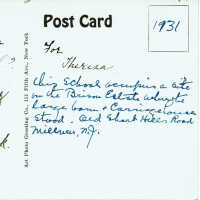 Post Card
1931
For
Theresa
This School occupies a site
on the Brison Estate where the
large barn & Carriage house
stood. Old Short Hills Road
Millburn, N.J.
Art Photo Greeting Co., 111 Fifth Ave., New York